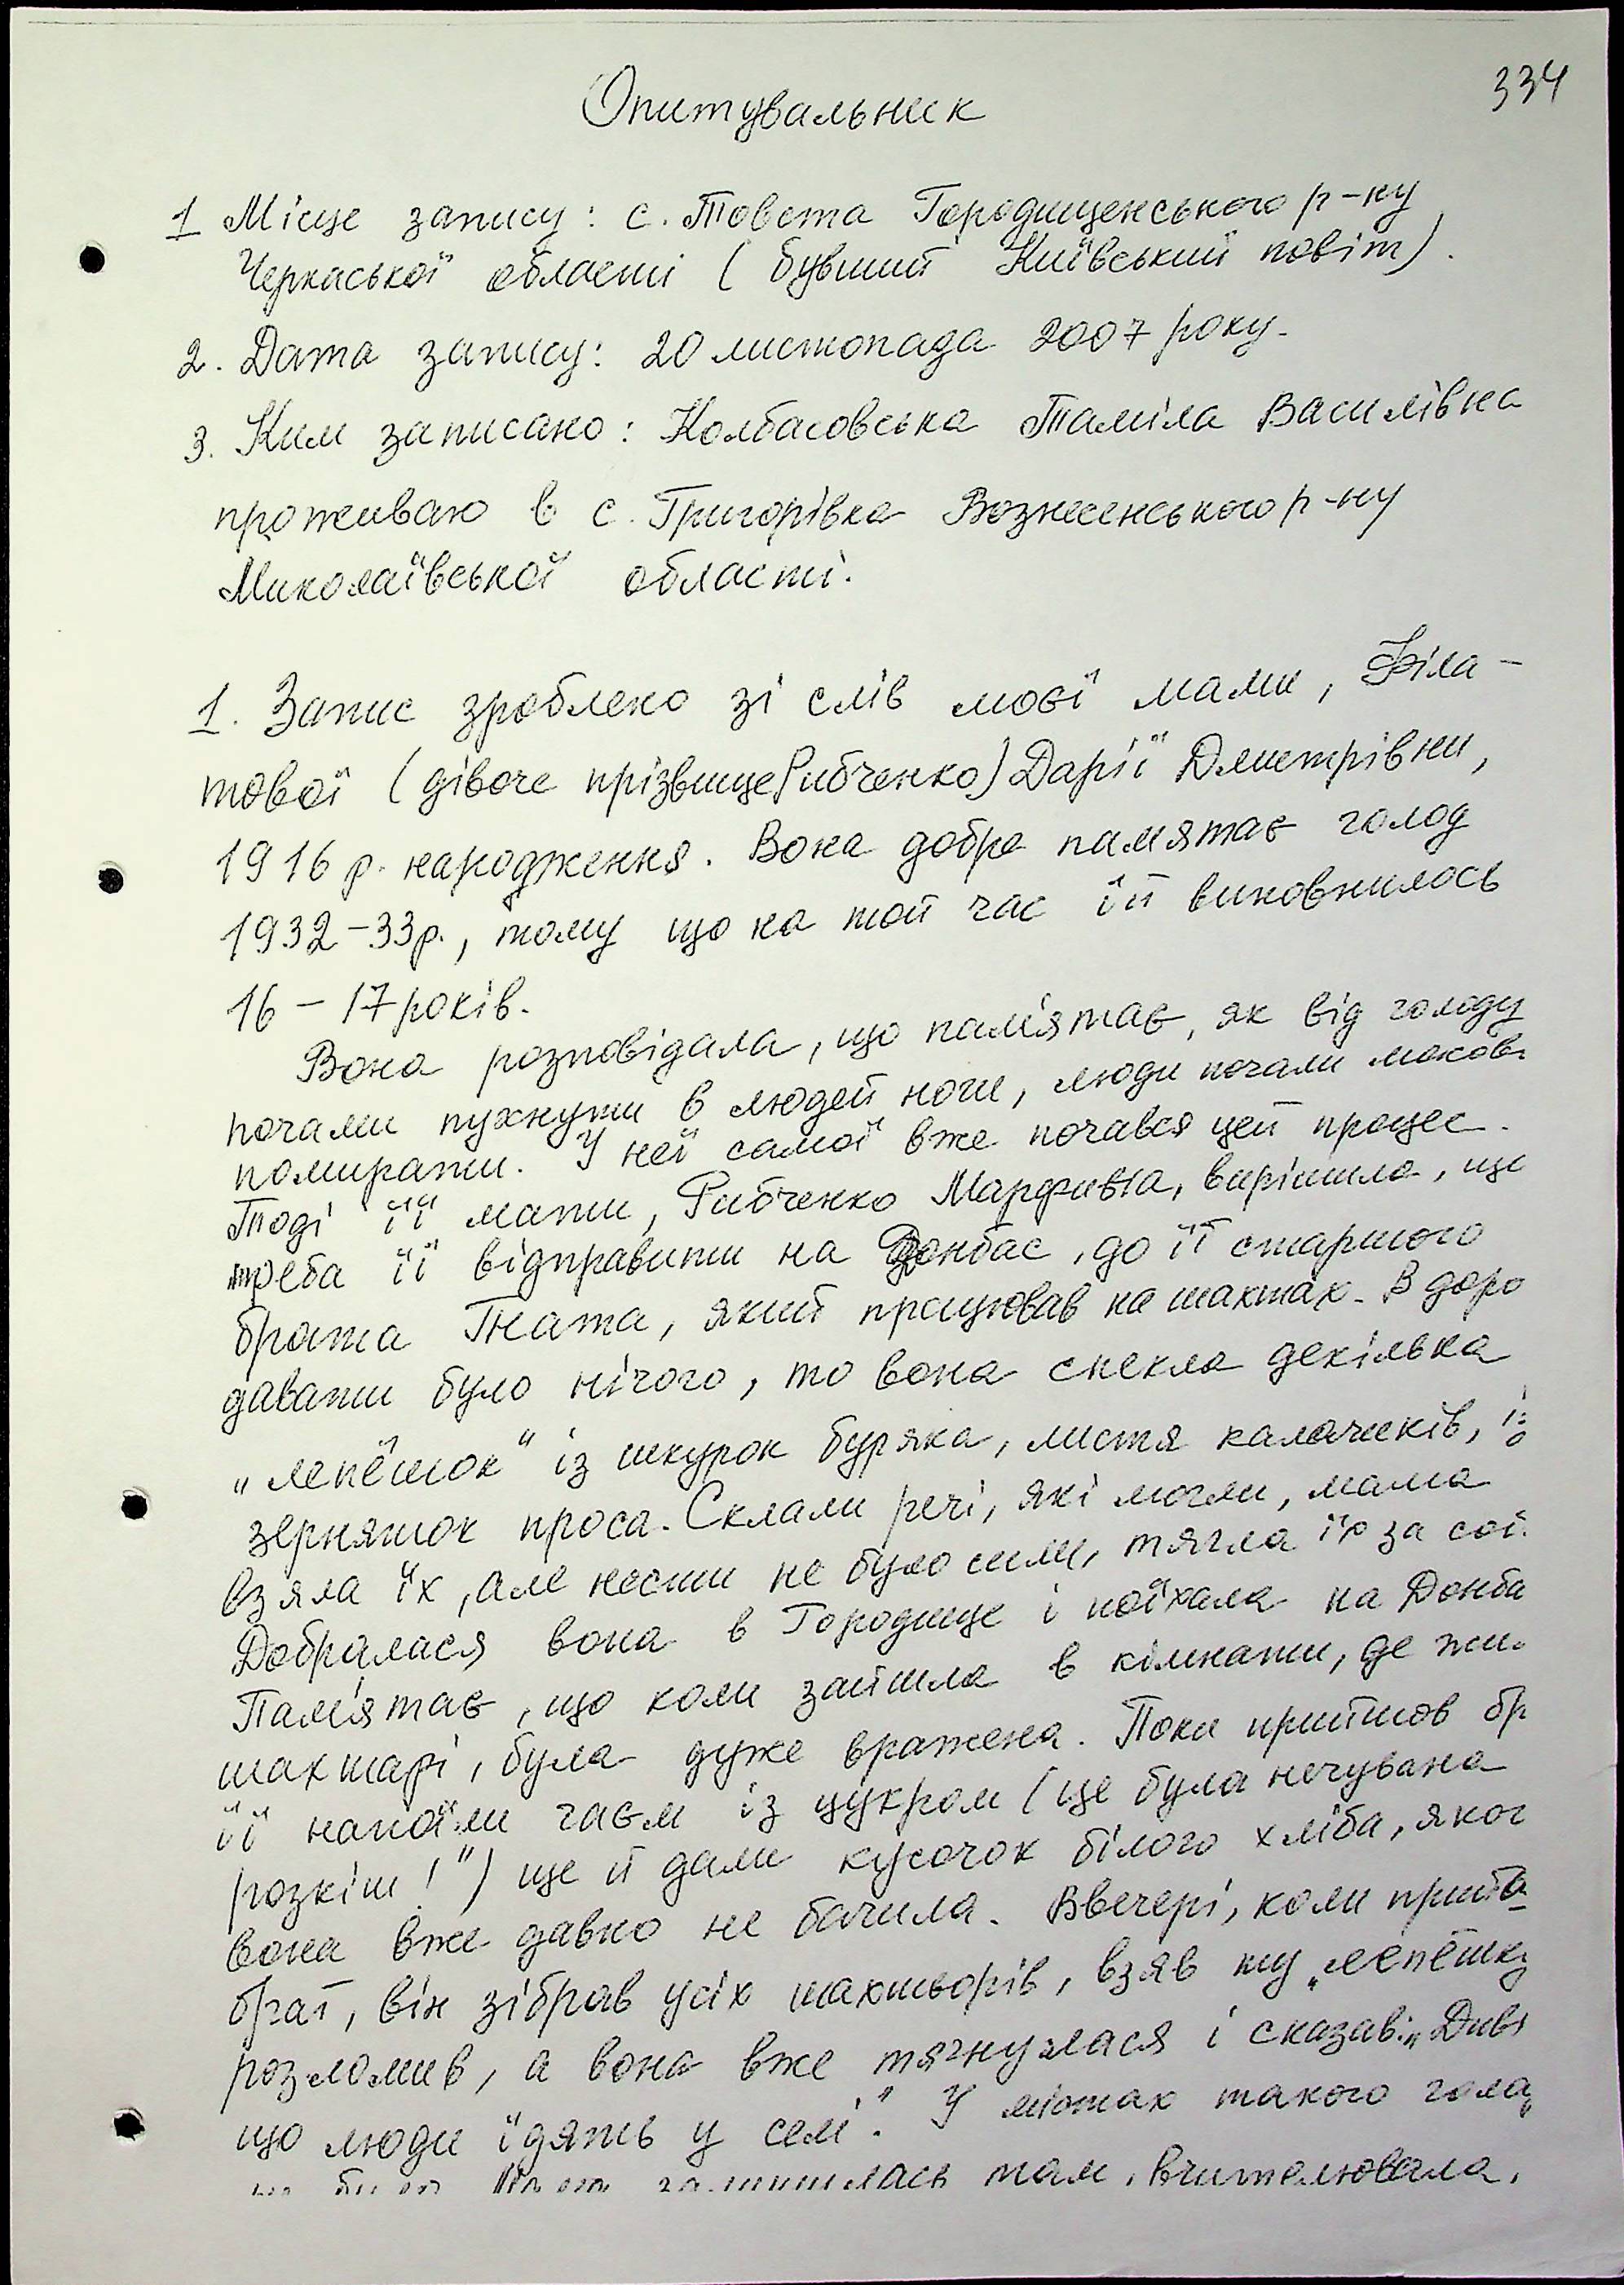 334
Опитувальник
1 Місце запису: с. Товста Городищенського р-ну
Черкаської області (бувший Київський повіт).
2. Дата запису: 20 листопада 2007 року.
3. Ким записано: Колбасовська Таміла Василівна
проживаю в с. Григорівка Вознесенського р-ну
Миколаївської області.
1. Запис зроблено зі слів моєї мами, Філа-
тової (дівоче прізвище Рибченко) Дарії Дмитрівни,
1916 р. народження. Вона добре памятає голод
1932-33р., тому що на той час їй виповнилось
16 - 17 років.
Вона розповідала, що пам'ятає, як від голоду
почали пухнути в людей ноги, люди почали масов
помирати. У неї самої вже почався цей процес.
Тоді її мати, Рибченко Марфа, вирішила, що
треба її відправити на Донбас, до її старшого
брата Гната, який працював на шахтах. В доро
давати було нічого, то вона спекла декілька
„лепёшок" із шкурок буряка, листя калачиків, із
зерняток проса. Склали речі, які могли, мама
взяла їх, але нести не було сили, тягла їх за соб
Добралася вона в Городище і поїхала на Донба
Пам'ятає, що коли зайшла в кімнати, де жи
шахтарі, була дуже вражена. Поки прийшов бр
її напоїли чаєм із цукром (це була нечувана
розкіш!") ще й дали кусочок білого хліба, яког
вона вже давно не бачила. Ввечері, коли прийш
брат, він зібрав усіх шахтьорів, взяв ту „лепёшку
розломив, а вона вже тягнулася і сказав: „Диві
що люди їдять у селі". У містах такого голо
залишилась там, вчителювала,